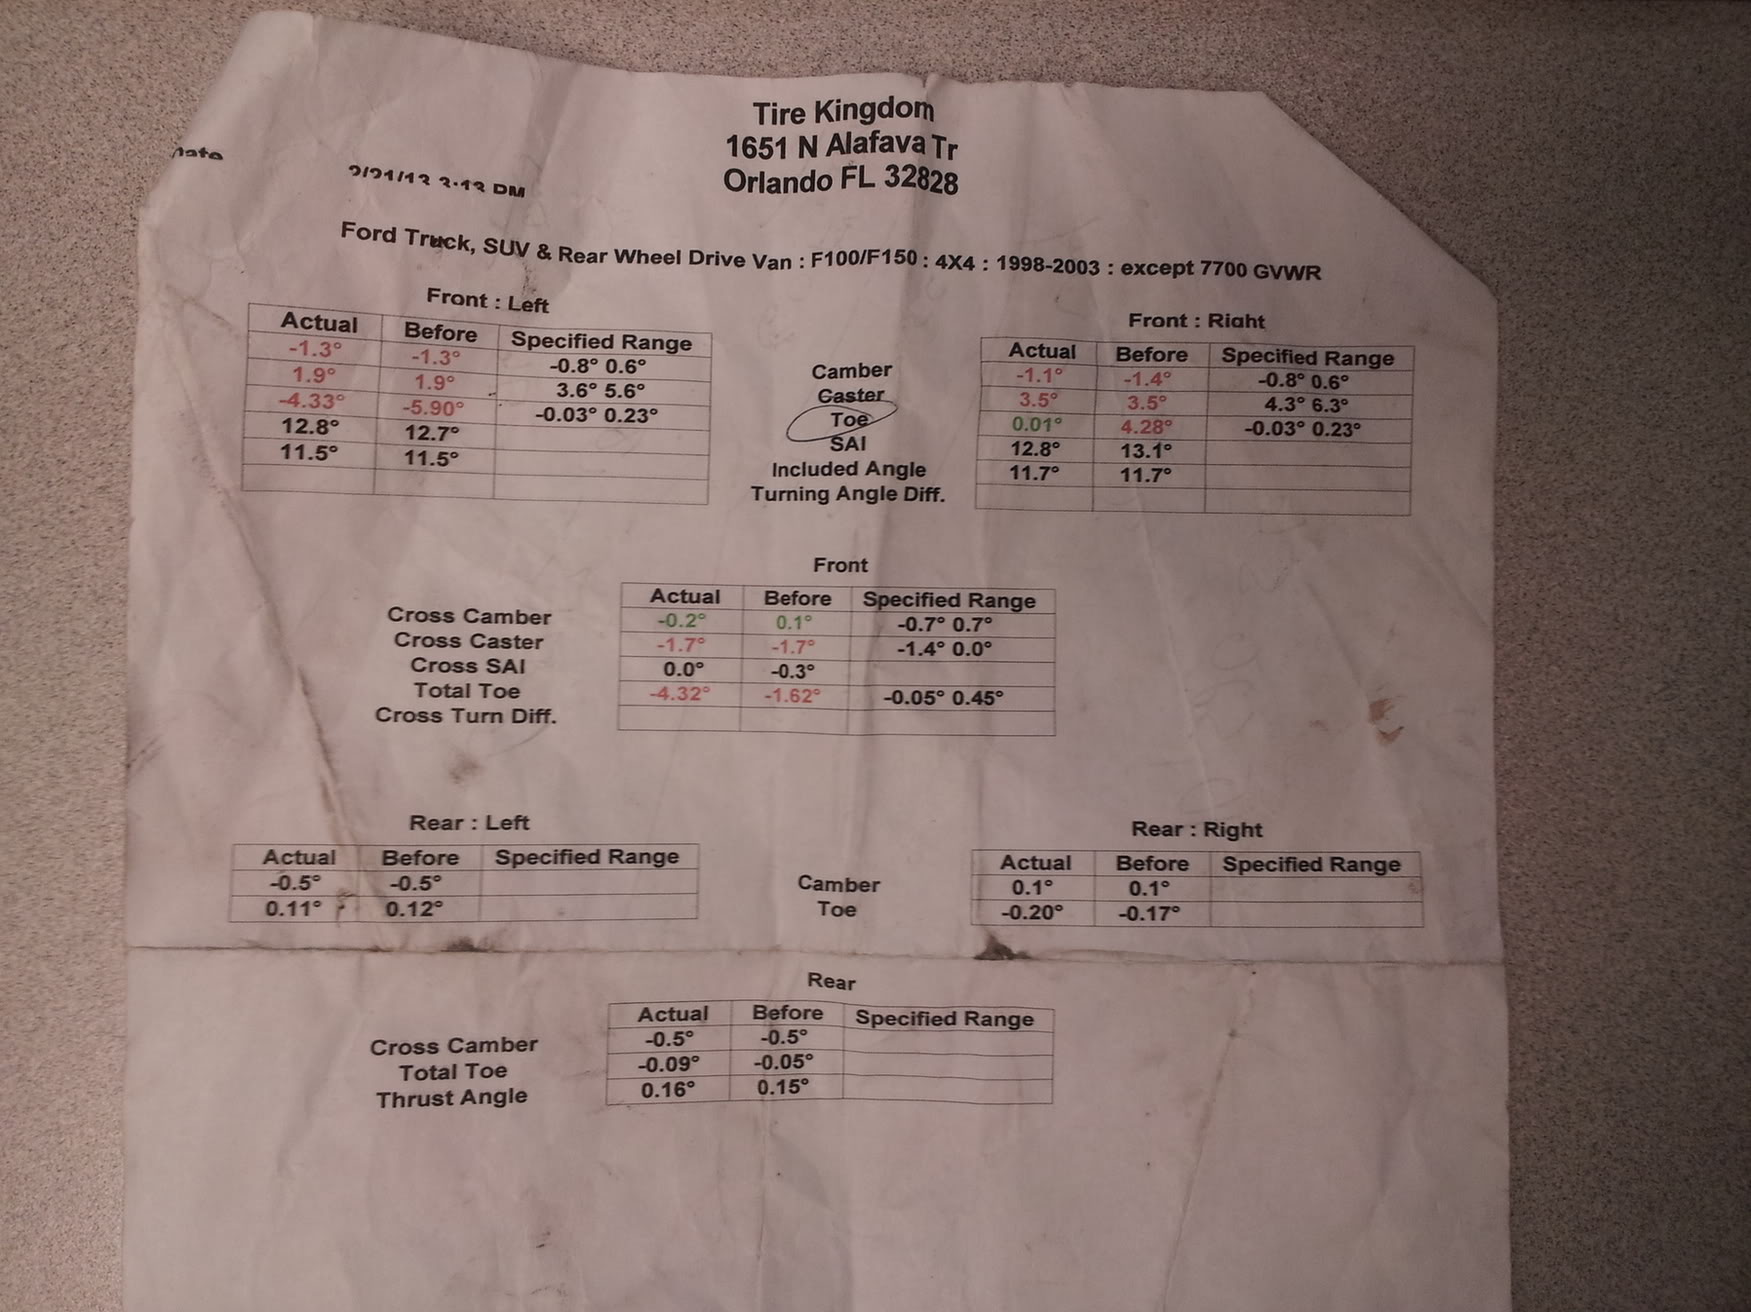 Tire Kingdom
1651 N Alafava Tr
Orlando FL 32828
2/21/13 3:13 PM
Ford Truck, SUV & Rear Wheel Drive Van : F100/F150 : 4X4 : 1998-2003 : except 7700 GVWR
Front : Left
Actual Before Specified Range
-1.3° -1.3° -0.8° 0.6°
1.9° 1.9° 3.6° 5.6°
-4.33° -5.90° -0.03° 0.23°
12.8° 12.7°
11.5° 11.5°
Camber
Caster
Toe
SAI
Included Angle
Turning Angle Diff.
Front : Right
Actual Before Specified Range
-1.1° -1.4° -0.8° 0.6°
3.5° 3.5° 4.3° 6.3°
0.01° 4.28° -0.03° 0.23°
12.8° 13.1°
11.7° 11.7°
Front
Actual Before Specified Range
Cross Camber -0.2° 0.1° -0.7° 0.7°
Cross Caster -1.7° -1.7° -1.4° 0.0°
Cross SAI 0.0° -0.3°
Total Toe -4.32° -1.62° -0.05° 0.45°
Cross Turn Diff.
Rear : Left
Actual Before Specified Range
-0.5° -0.5°
0.11° 0.12°
Camber
Toe
Rear : Right
Actual Before Specified Range
0.1° 0.1°
-0.20° -0.17°
Rear
Actual Before Specified Range
Cross Camber -0.5° -0.5°
Total Toe -0.09° -0.05°
Thrust Angle 0.16° 0.15°